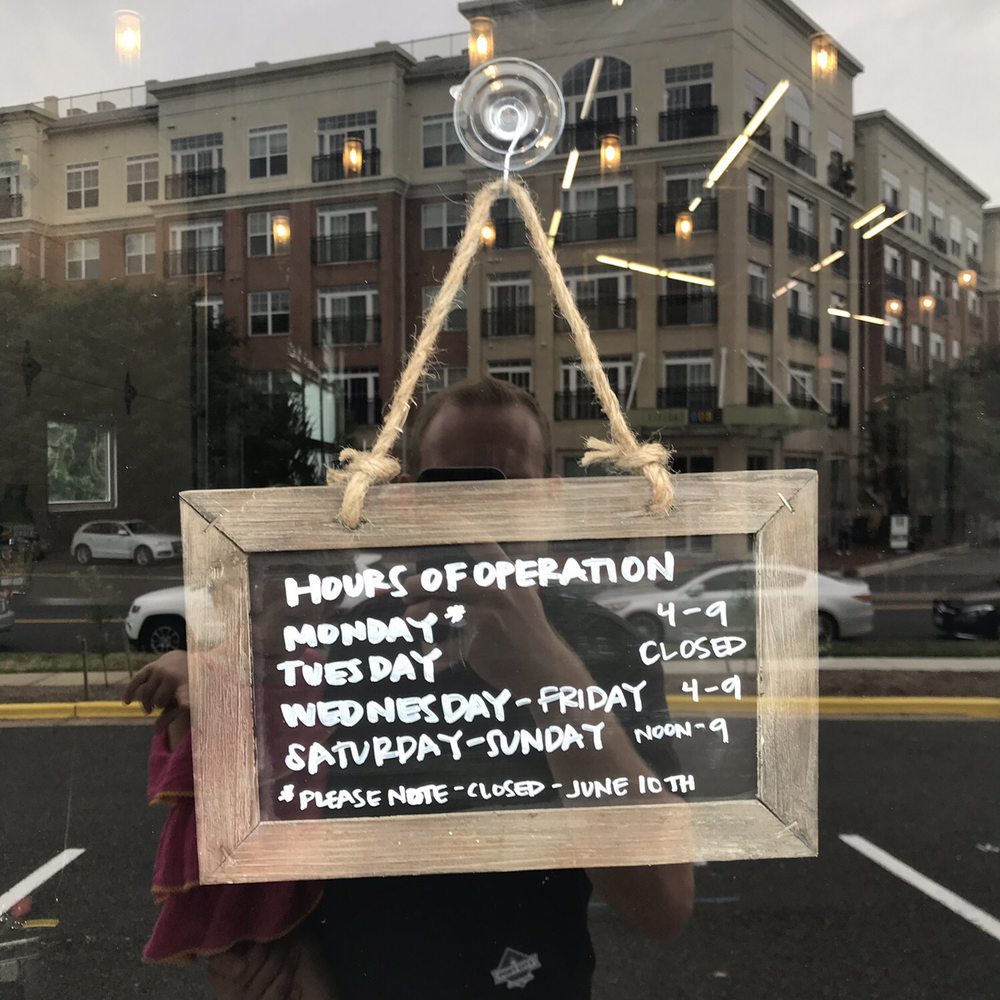 HOURS OF OPERATION
MONDAY* 4-9
TUESDAY CLOSED
WEDNESDAY-FRIDAY 4-9
SATURDAY-SUNDAY NOON-9
*PLEASE NOTE-CLOSED-JUNE 10TH